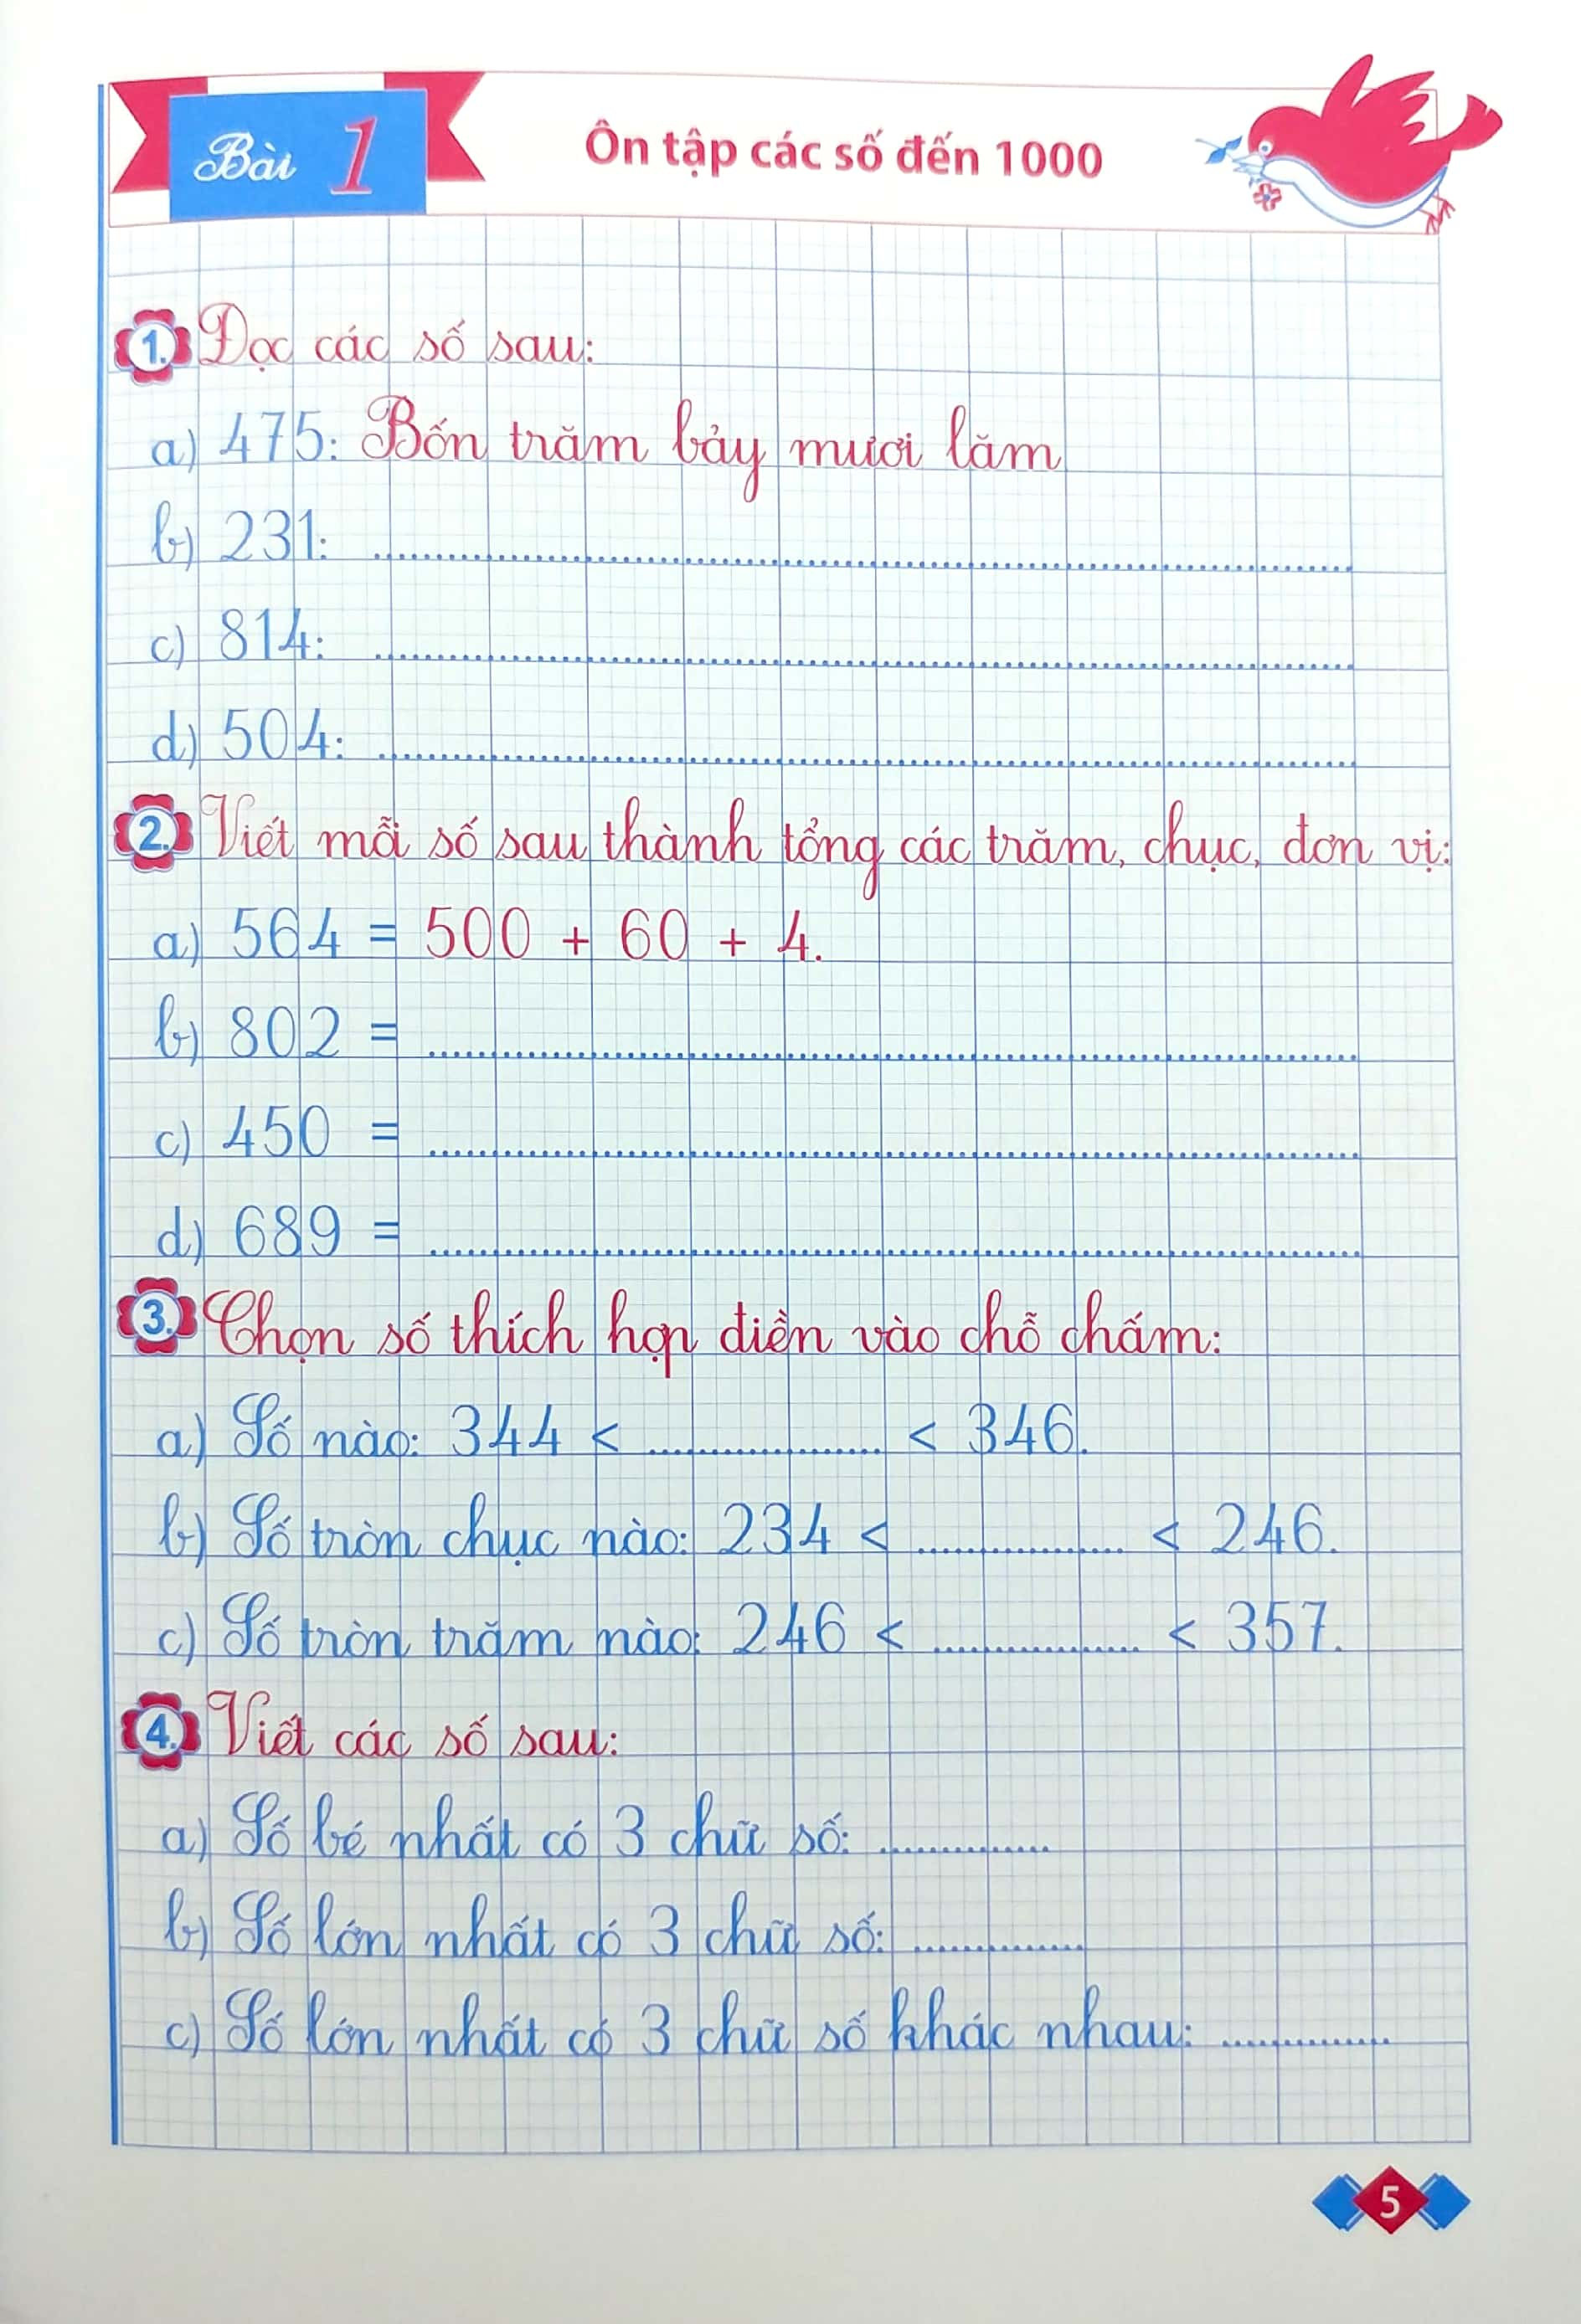 Bài 1
Ôn tập các số đến 1000
1. Đọc các số sau:
a) 475: Bốn trăm bảy mươi lăm
b) 231: ....................
c) 814: ....................
d) 504: ....................
2. Viết mỗi số sau thành tổng các trăm, chục, đơn vị:
a) 564 = 500 + 60 + 4.
b) 802 = ....................
c) 450 = ....................
d) 689 = ....................
3. Chọn số thích hợp điền vào chỗ chấm:
a) Số nào: 344 < .................... < 346.
b) Số tròn chục nào: 234 < .................... < 246.
c) Số tròn trăm nào: 246 < .................... < 357.
4. Viết các số sau:
a) Số bé nhất có 3 chữ số: ..............
b) Số lớn nhất có 3 chữ số: ..............
c) Số lớn nhất có 3 chữ số khác nhau: ..............
5